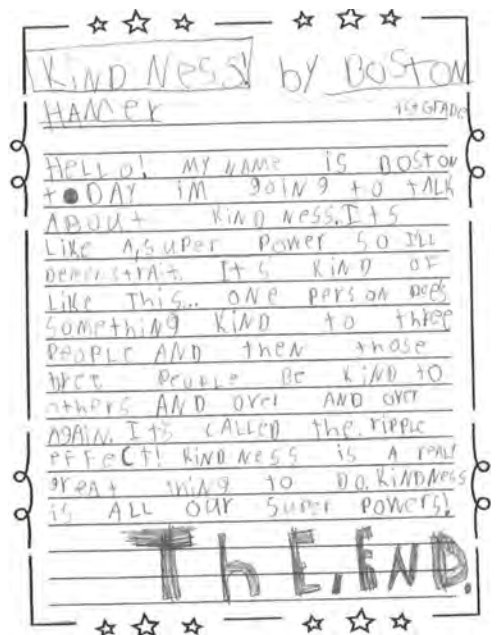 KiND Ness! by BOSTON
HAMER 1st GRADE
HELLo! MY NAME iS BOSTON
tODAY iM gOiNg tO tALK
ABOUt KiND NESS. Its
Like A, SUPER POWER SO I'LL
DEMENStRAit. It'S KiND OF
LiKE ThiS... ONE PERSON DOES
SOMEthiNg KiND to thREE
PEOPLE AND theN thOSE
thREE PEOPLE BE KiND tO
OthERS AND OVER AND OVER
AgAiN. ItS CALLED thE. RiPPLE
EFFECt! KiNDNESS iS A REALY
gREAt thiNg tO DO. KiNDNESS
iS ALL OUR SUPER POWERS!
ThE, END.